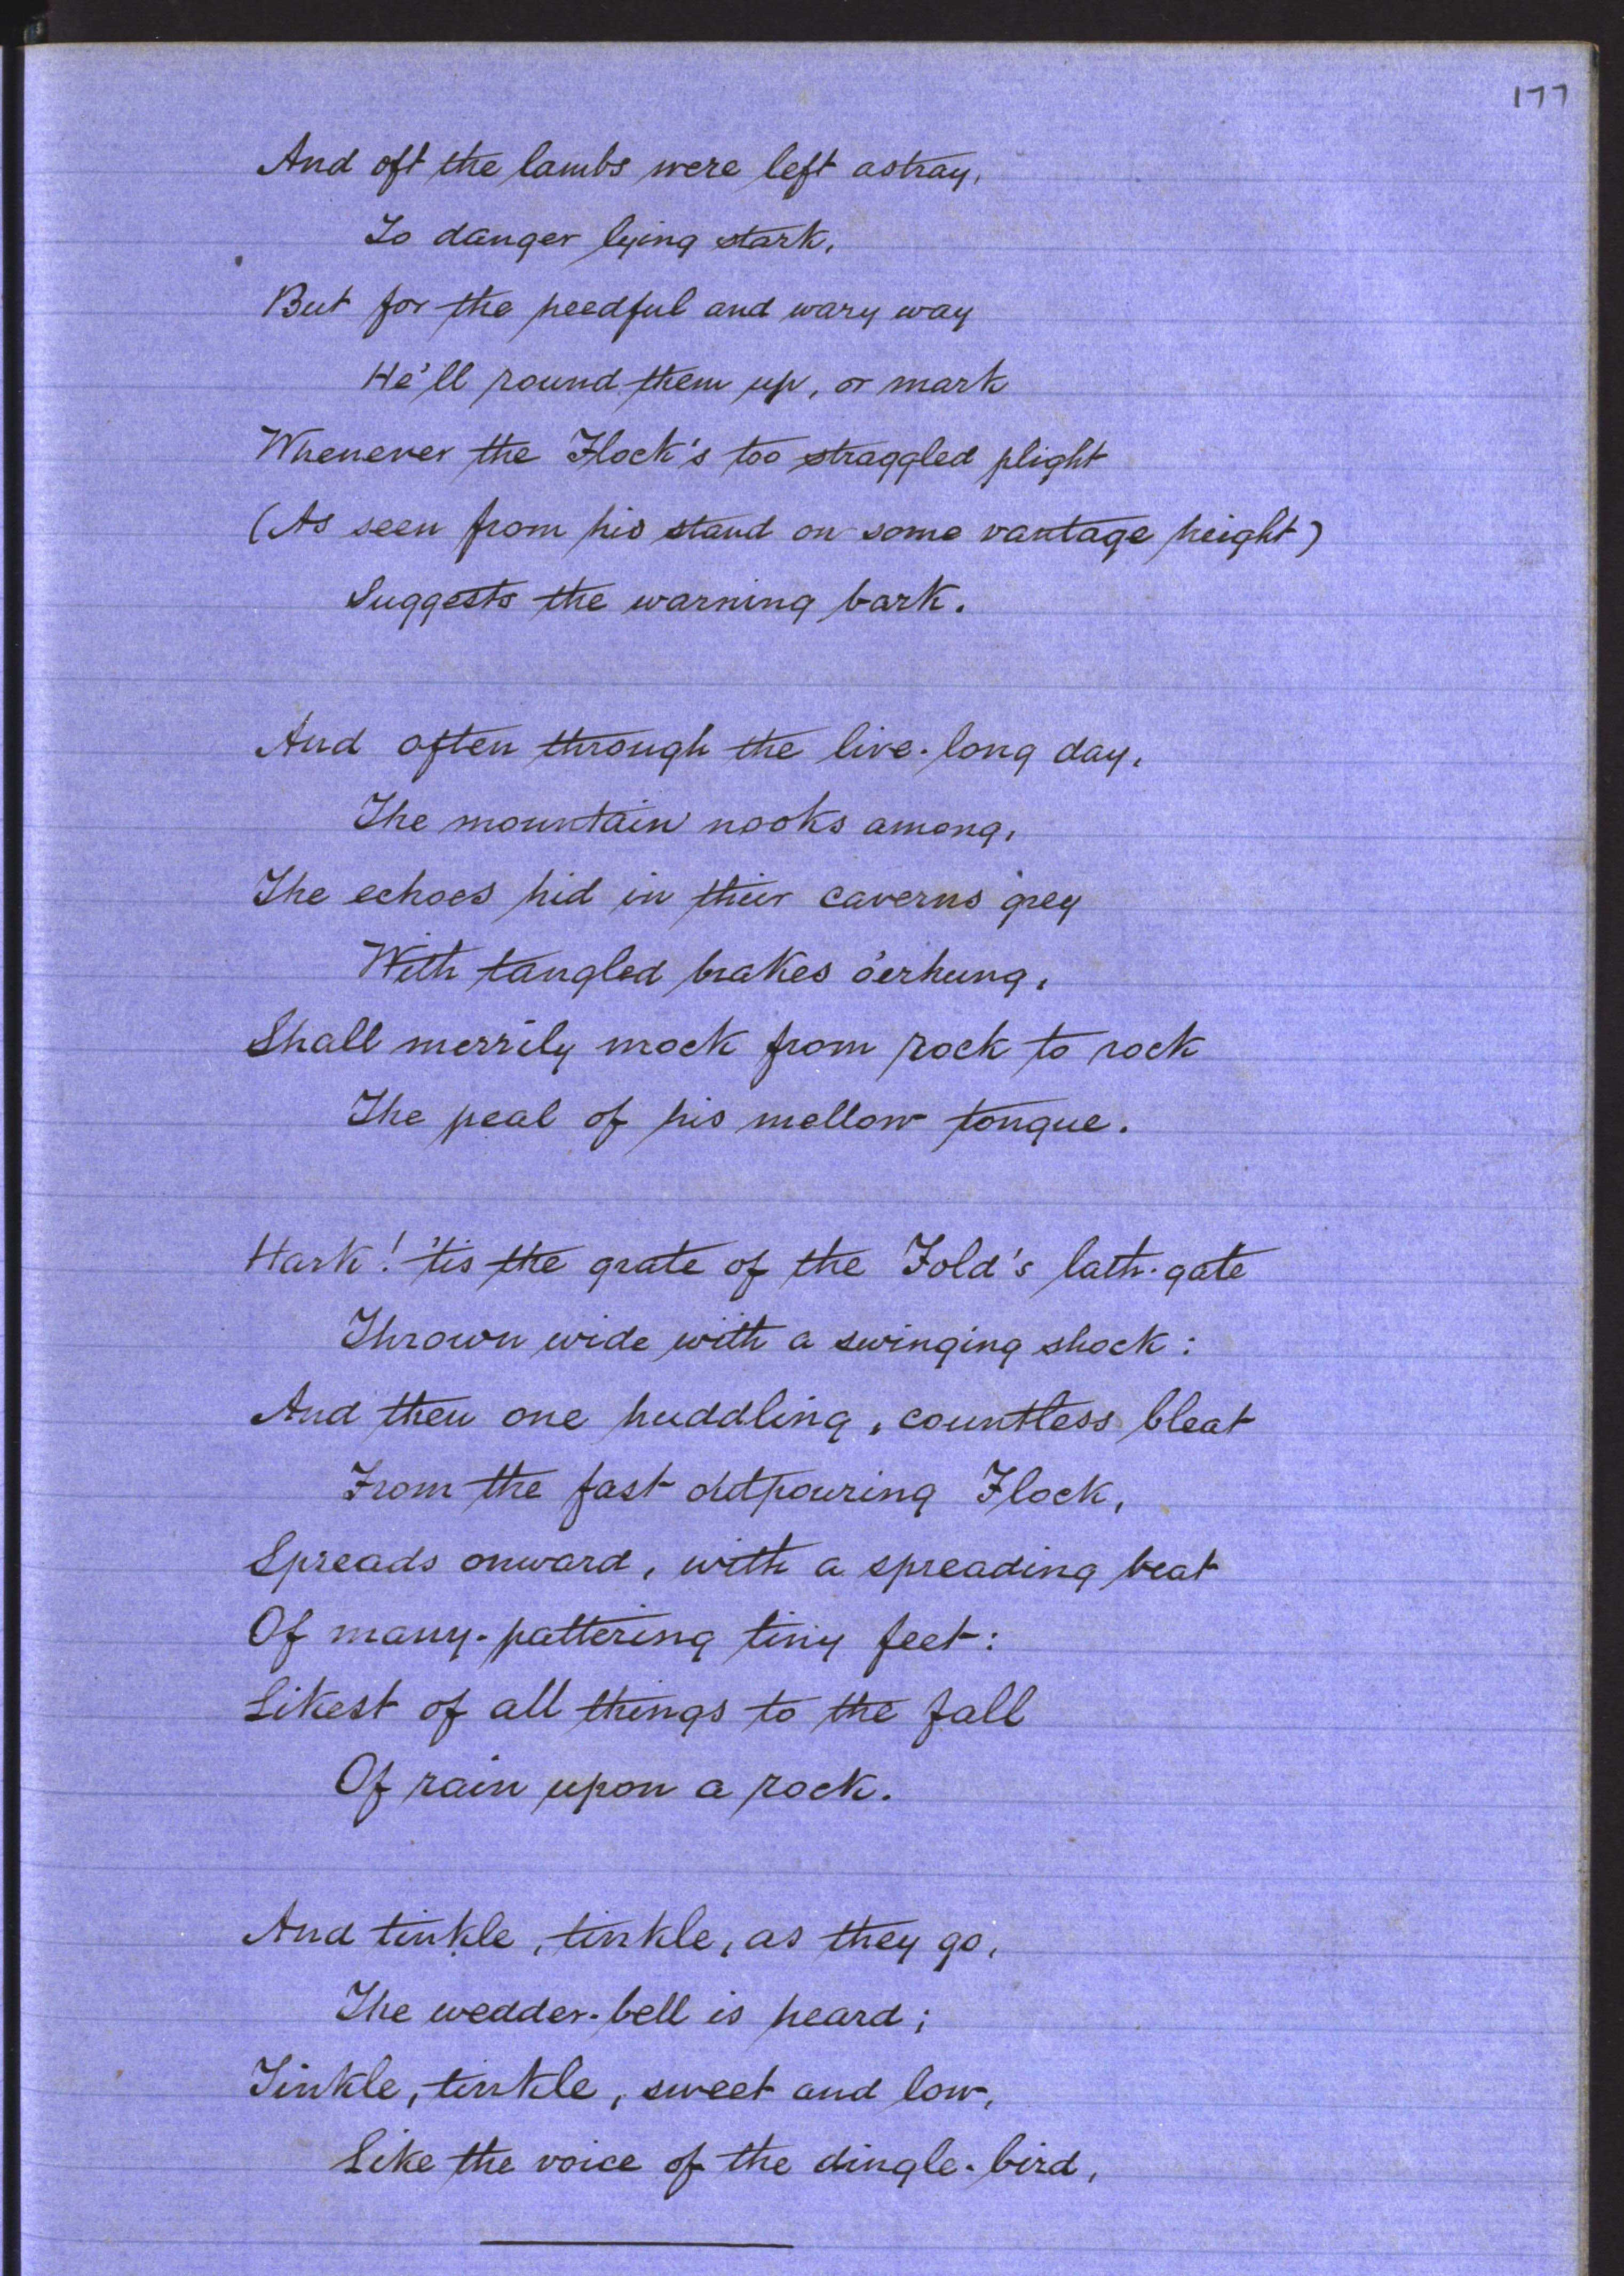 177
And oft the lambs were left astray,
To danger lying stark,
But for the heedful and wary way
He'll round them up, or mark
Whenever the Flock's too straggled plight
(As seen from his stand on some vantage height)
Suggests the warning bark.
And often through the live-long day,
The mountain nooks among,
The echoes hid in their caverns grey
With tangled brakes o'erhung,
Shall merrily mock from rock to rock
The peal of his mellow tongue.
Hark! 'tis the grate of the Fold's lath-gate
Thrown wide with a swinging shock:
And then one huddling, countless bleat
From the fast outpouring Flock,
Spreads onward, with a spreading beat
Of many-pattering tiny feet:
Likest of all things to the fall
Of rain upon a rock.
And tinkle, tinkle, as they go,
The wedder-bell is heard;
Tinkle, tinkle, sweet and low,
Like the voice of the dingle-bird,